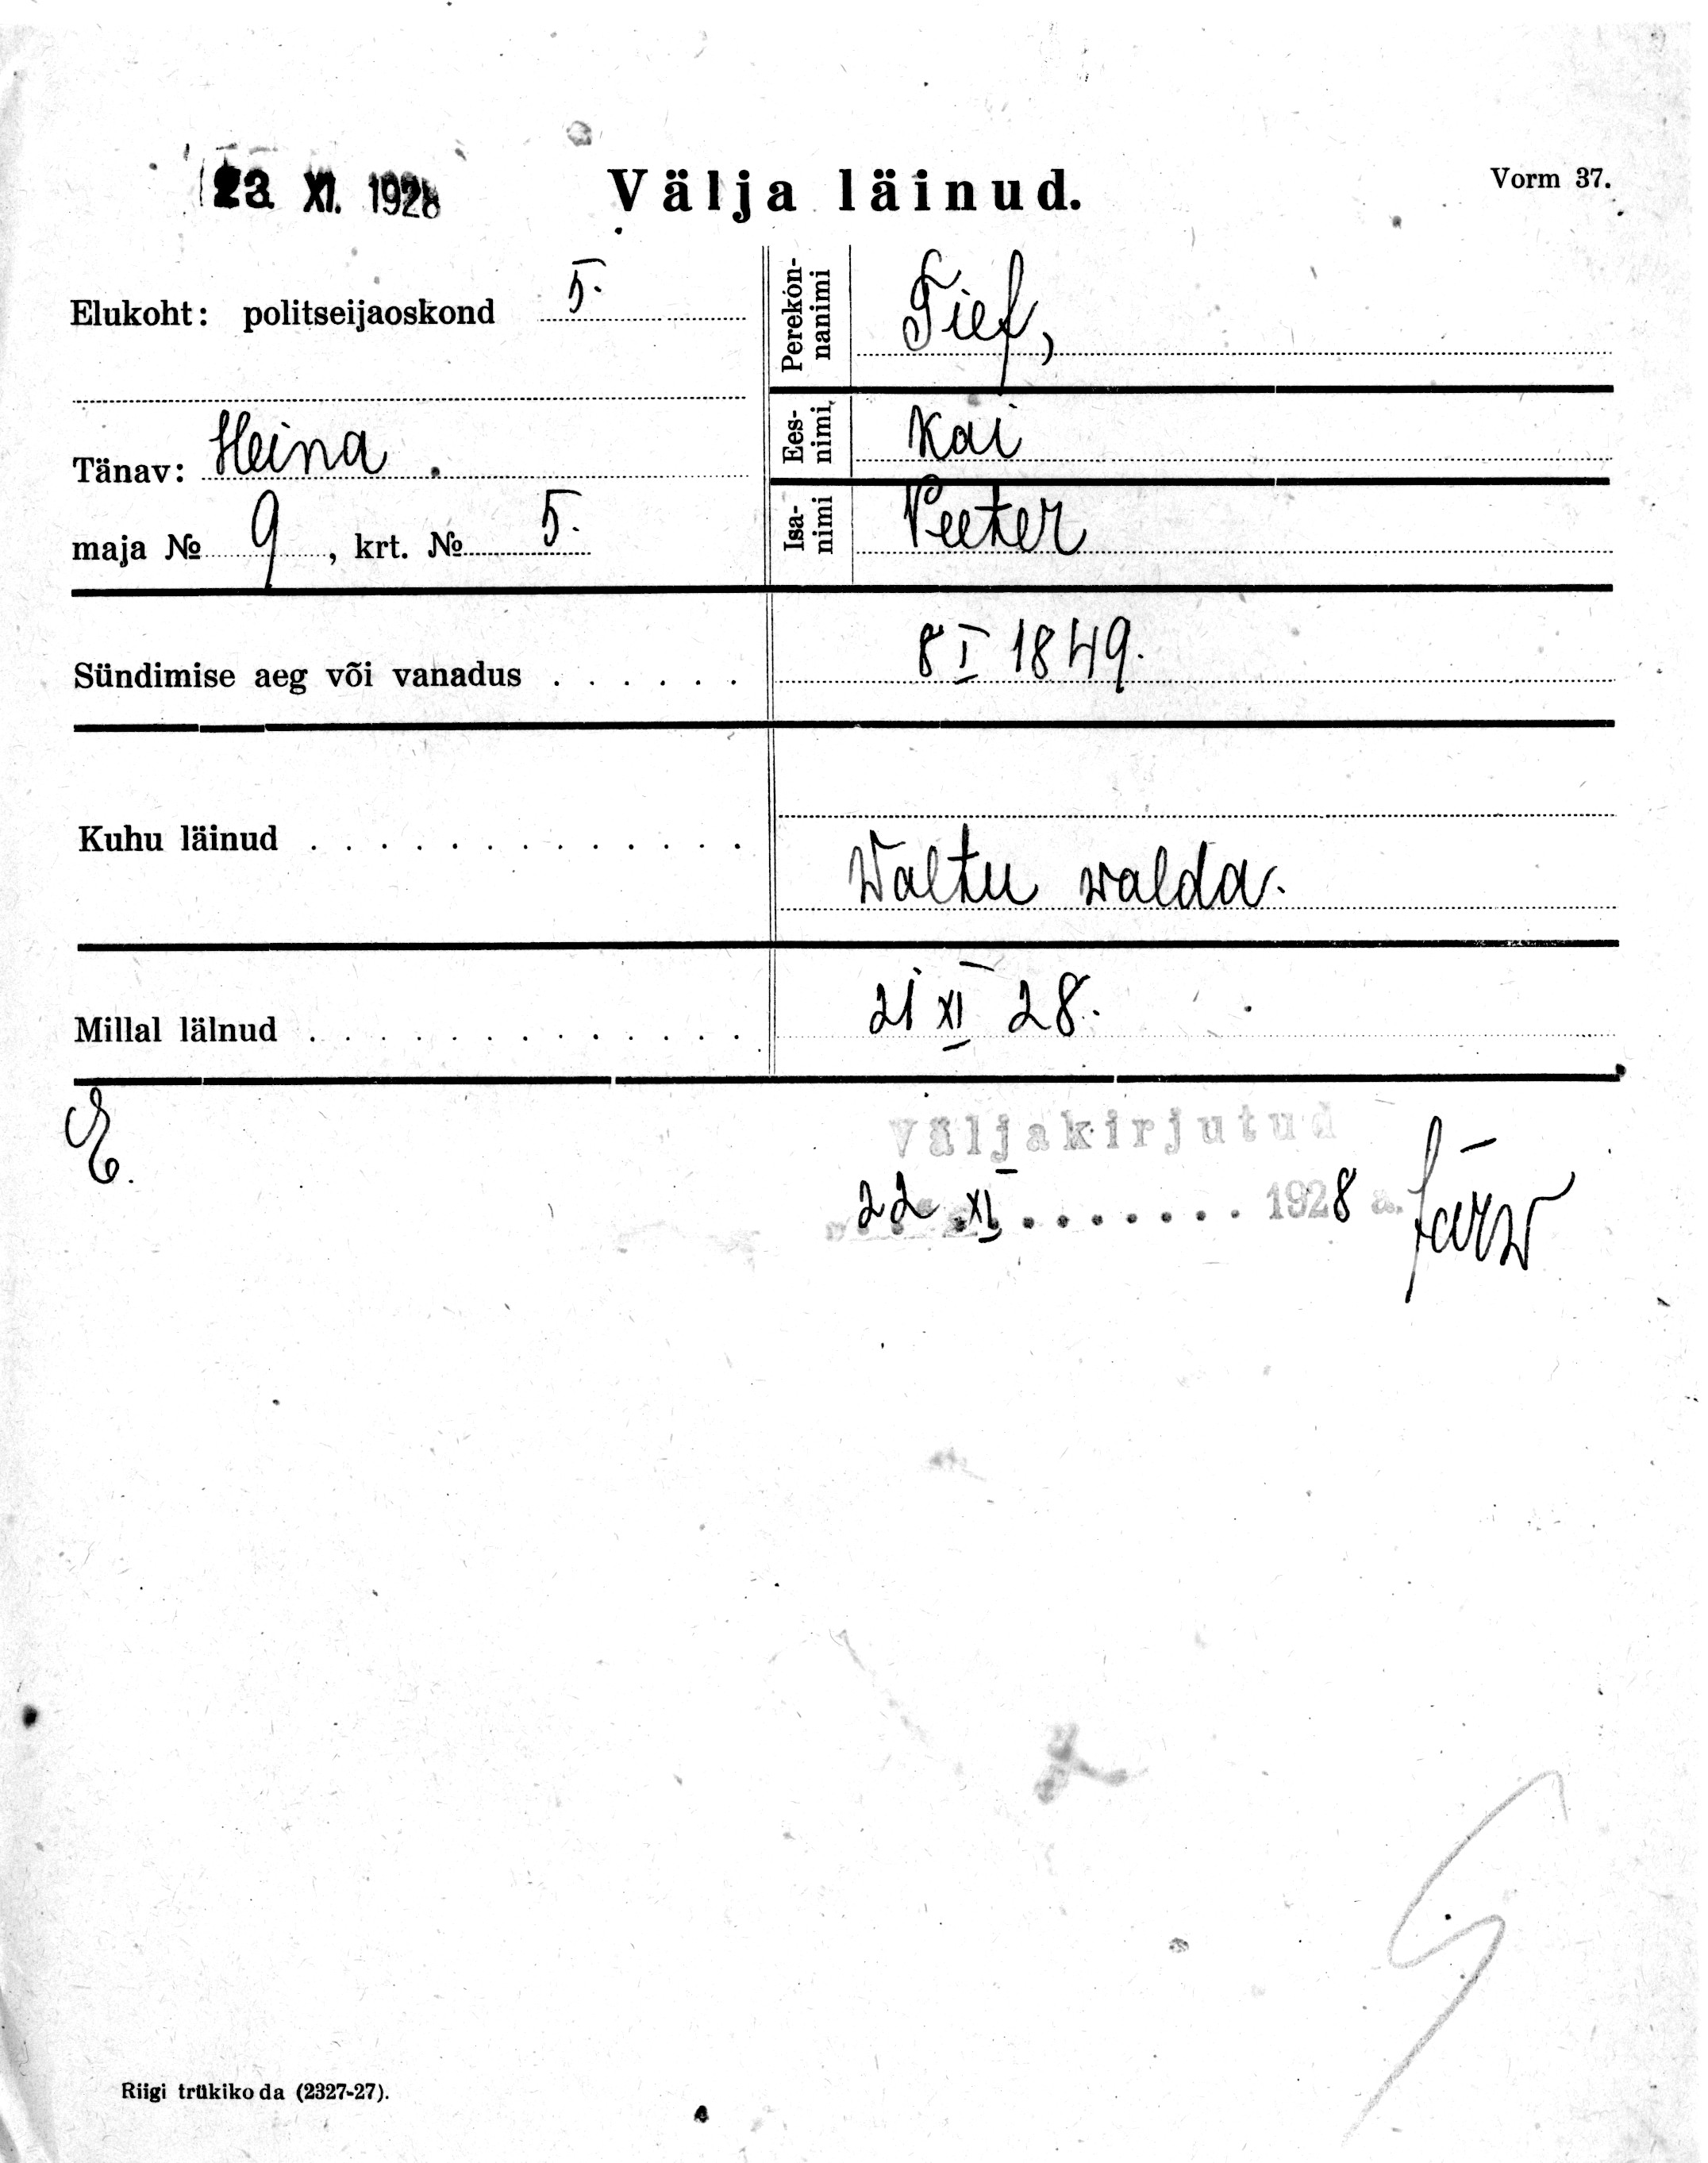 23. XI. 1928
Välja läinud.
Vorm 37.
Elukoht: politseijaoskond 5.
Tänav: Heina.
maja № 9, krt. № 5.
Perekon-
nanimi
Tief,
Ees-
nimi
Kai
Isa-
nimi
Peeter
Sündimise aeg või vanadus . . . . . . 8 I 1849.
Kuhu läinud . . . . . . . . . . . . . Waltu walda.
Millal läinud . . . . . . . . . . . . . 21 XI 28.
E.
Väljakirjutud
22. XI . . . . . . . 1928 a.
Riigi trükikoda (2327-27).